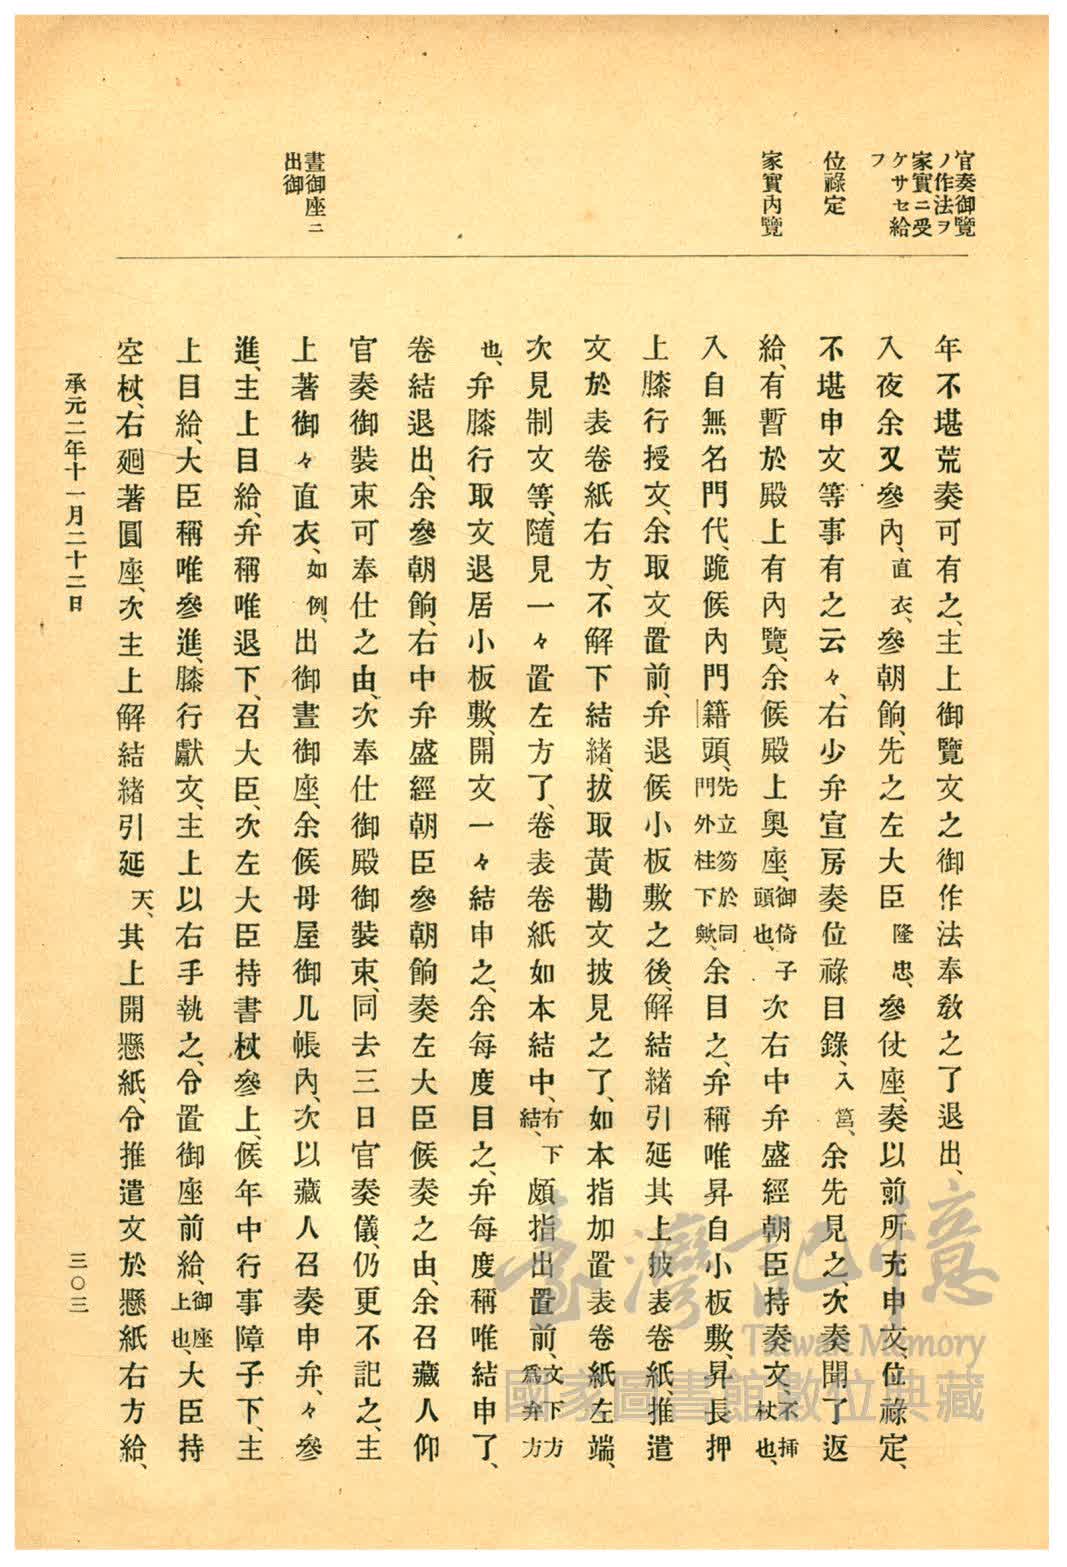 官奏御覽
ノ作法ヲ
家實ニ受
ケサセ給
フ
位祿定
家實內覽
晝御座ニ
出御
年不堪荒奏可有之、主上御覽文之御作法奉敎之了退出、
入夜余又參內、直衣、參朝餉、先之左大臣隆忠、參仗座、奏以前所充申文、位祿定、
不堪申文等事有之云々、右少弁宣房奏位祿目錄、入筥、余先見之次奏聞了返
給、有暫於殿上有內覽、余候殿上奧座、御倚子頭也、次右中弁盛經朝臣持奏文、不挿杖也、
入自無名門代、跪候內門籍頭、先立笏於同門外柱下歟、余目之、弁稱唯昇自小板敷、昇長押
上膝行授文、余取文置前、弁退候小板敷之後、解結緖引延其上披表卷紙、推遣
文於表卷紙右方、不解下結緖、拔取黃勘文披見之了、如本指加置表卷紙左端、
次見制文等、隨見一々置左方了、卷表卷紙如本結中、有下結、頗指出置前、文下方爲弁方
也、弁膝行取文退居小板敷、開文一々結申之、余每度目之、弁每度稱唯結申了、
卷結退出、余參朝餉、右中弁盛經朝臣參朝餉奏左大臣候奏之由、余召藏人仰
官奏御裝束可奉仕之由、次奉仕御殿御裝束、同去三日官奏儀、仍更不記之、主
上著御々直衣、如例、出御晝御座、余候母屋御几帳內、次以藏人召奏申弁、々參
進、主上目給、弁稱唯退下、召大臣、次左大臣持書杖參上、候年中行事障子下、主
上目給、大臣稱唯參進、膝行獻文、主上以右手執之、令置御座前給、御座上也、大臣持
空杖、右廻著圓座、次主上解結緖引延天、其上開懸紙、令推遣文於懸紙右方給、
承元二年十一月二十二日
三〇三
臺灣記憶
Taiwan Memory
國家圖書館數位典藏